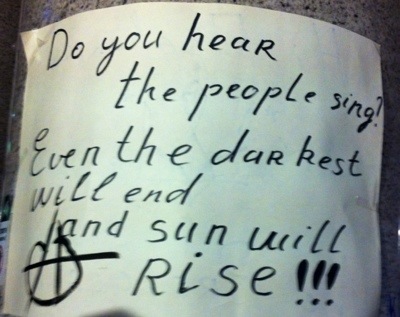 Do you hear
the people sing?
Even the darkest
will end
and sun will
Rise!!!